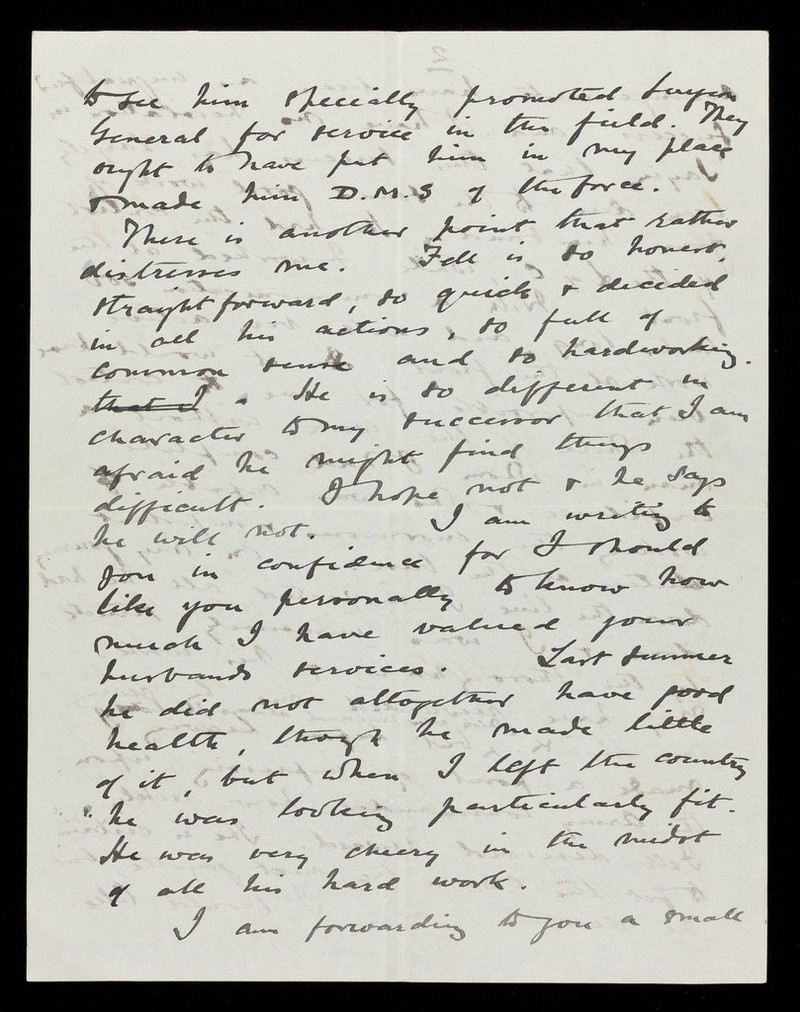 to see him specially promoted Surgeon
General for service in the field. They
ought to have put him in my place
& made him D.M.S of the force.
There is another point that rather
distresses me. Fell is so honest,
straightforward, so quick & decided
in all his actions, so full of
common sense and so hardworking.
that I . He is so different in
character to my successor that I am
afraid he might find things
difficult. I hope not & he says
he will not. I am writing to
you in confidence for I should
like you personally to know how
much I have valued your
husbands services. Last summer
he did not altogether have good
health, though he made little
of it, but when I left the country
he was looking particularly fit.
He was very cheery in the midst
of all his hard work.
I am forwarding to you a small